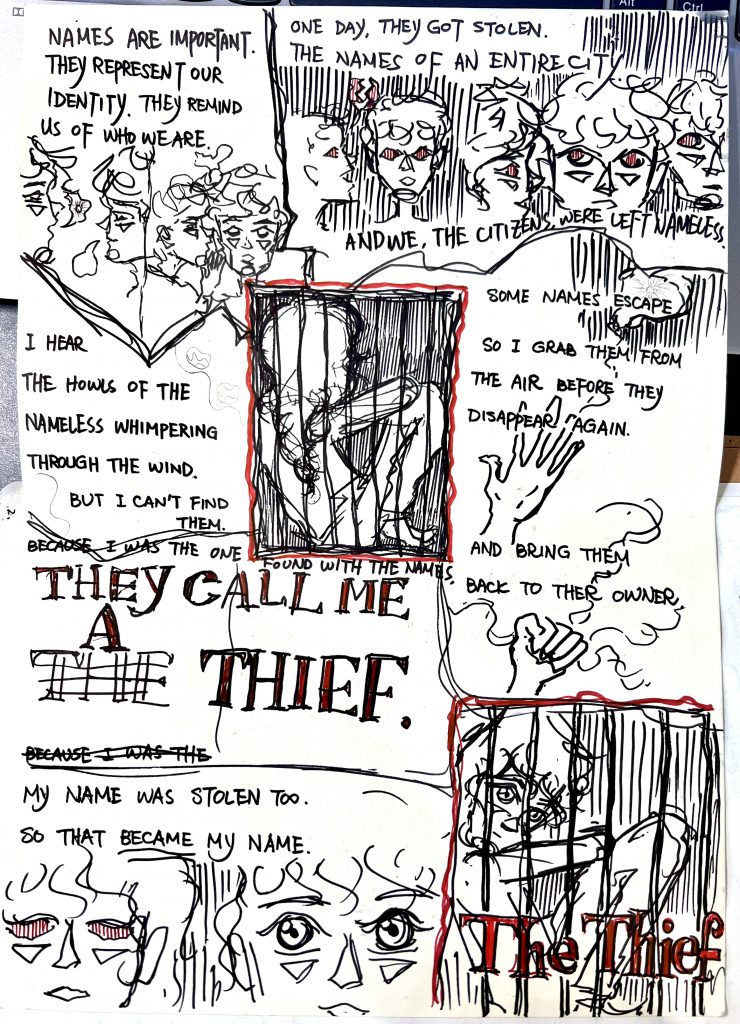 NAMES ARE IMPORTANT.
THEY REPRESENT OUR
IDENTITY. THEY REMIND
US OF WHO WE ARE.
ONE DAY, THEY GOT STOLEN.
THE NAMES OF AN ENTIRE CITY
AND WE, THE CITIZENS, WERE LEFT NAMELESS.
I HEAR
THE HOWLS OF THE
NAMELESS WHIMPERING
THROUGH THE WIND.
BUT I CAN'T FIND
THEM.
SOME NAMES ESCAPE
SO I GRAB THEM FROM
THE AIR BEFORE THEY
DISAPPEAR AGAIN.
AND BRING THEM
BACK TO THER OWNER,
BECAUSE I WAS THE ONE
FOUND WITH THE NAMES,
THEY CALL ME
A
THE THIEF.
BECAUSE I WAS THE
MY NAME WAS STOLEN TOO.
SO THAT BECAME MY NAME.
The Thief
Alt
Ctrl